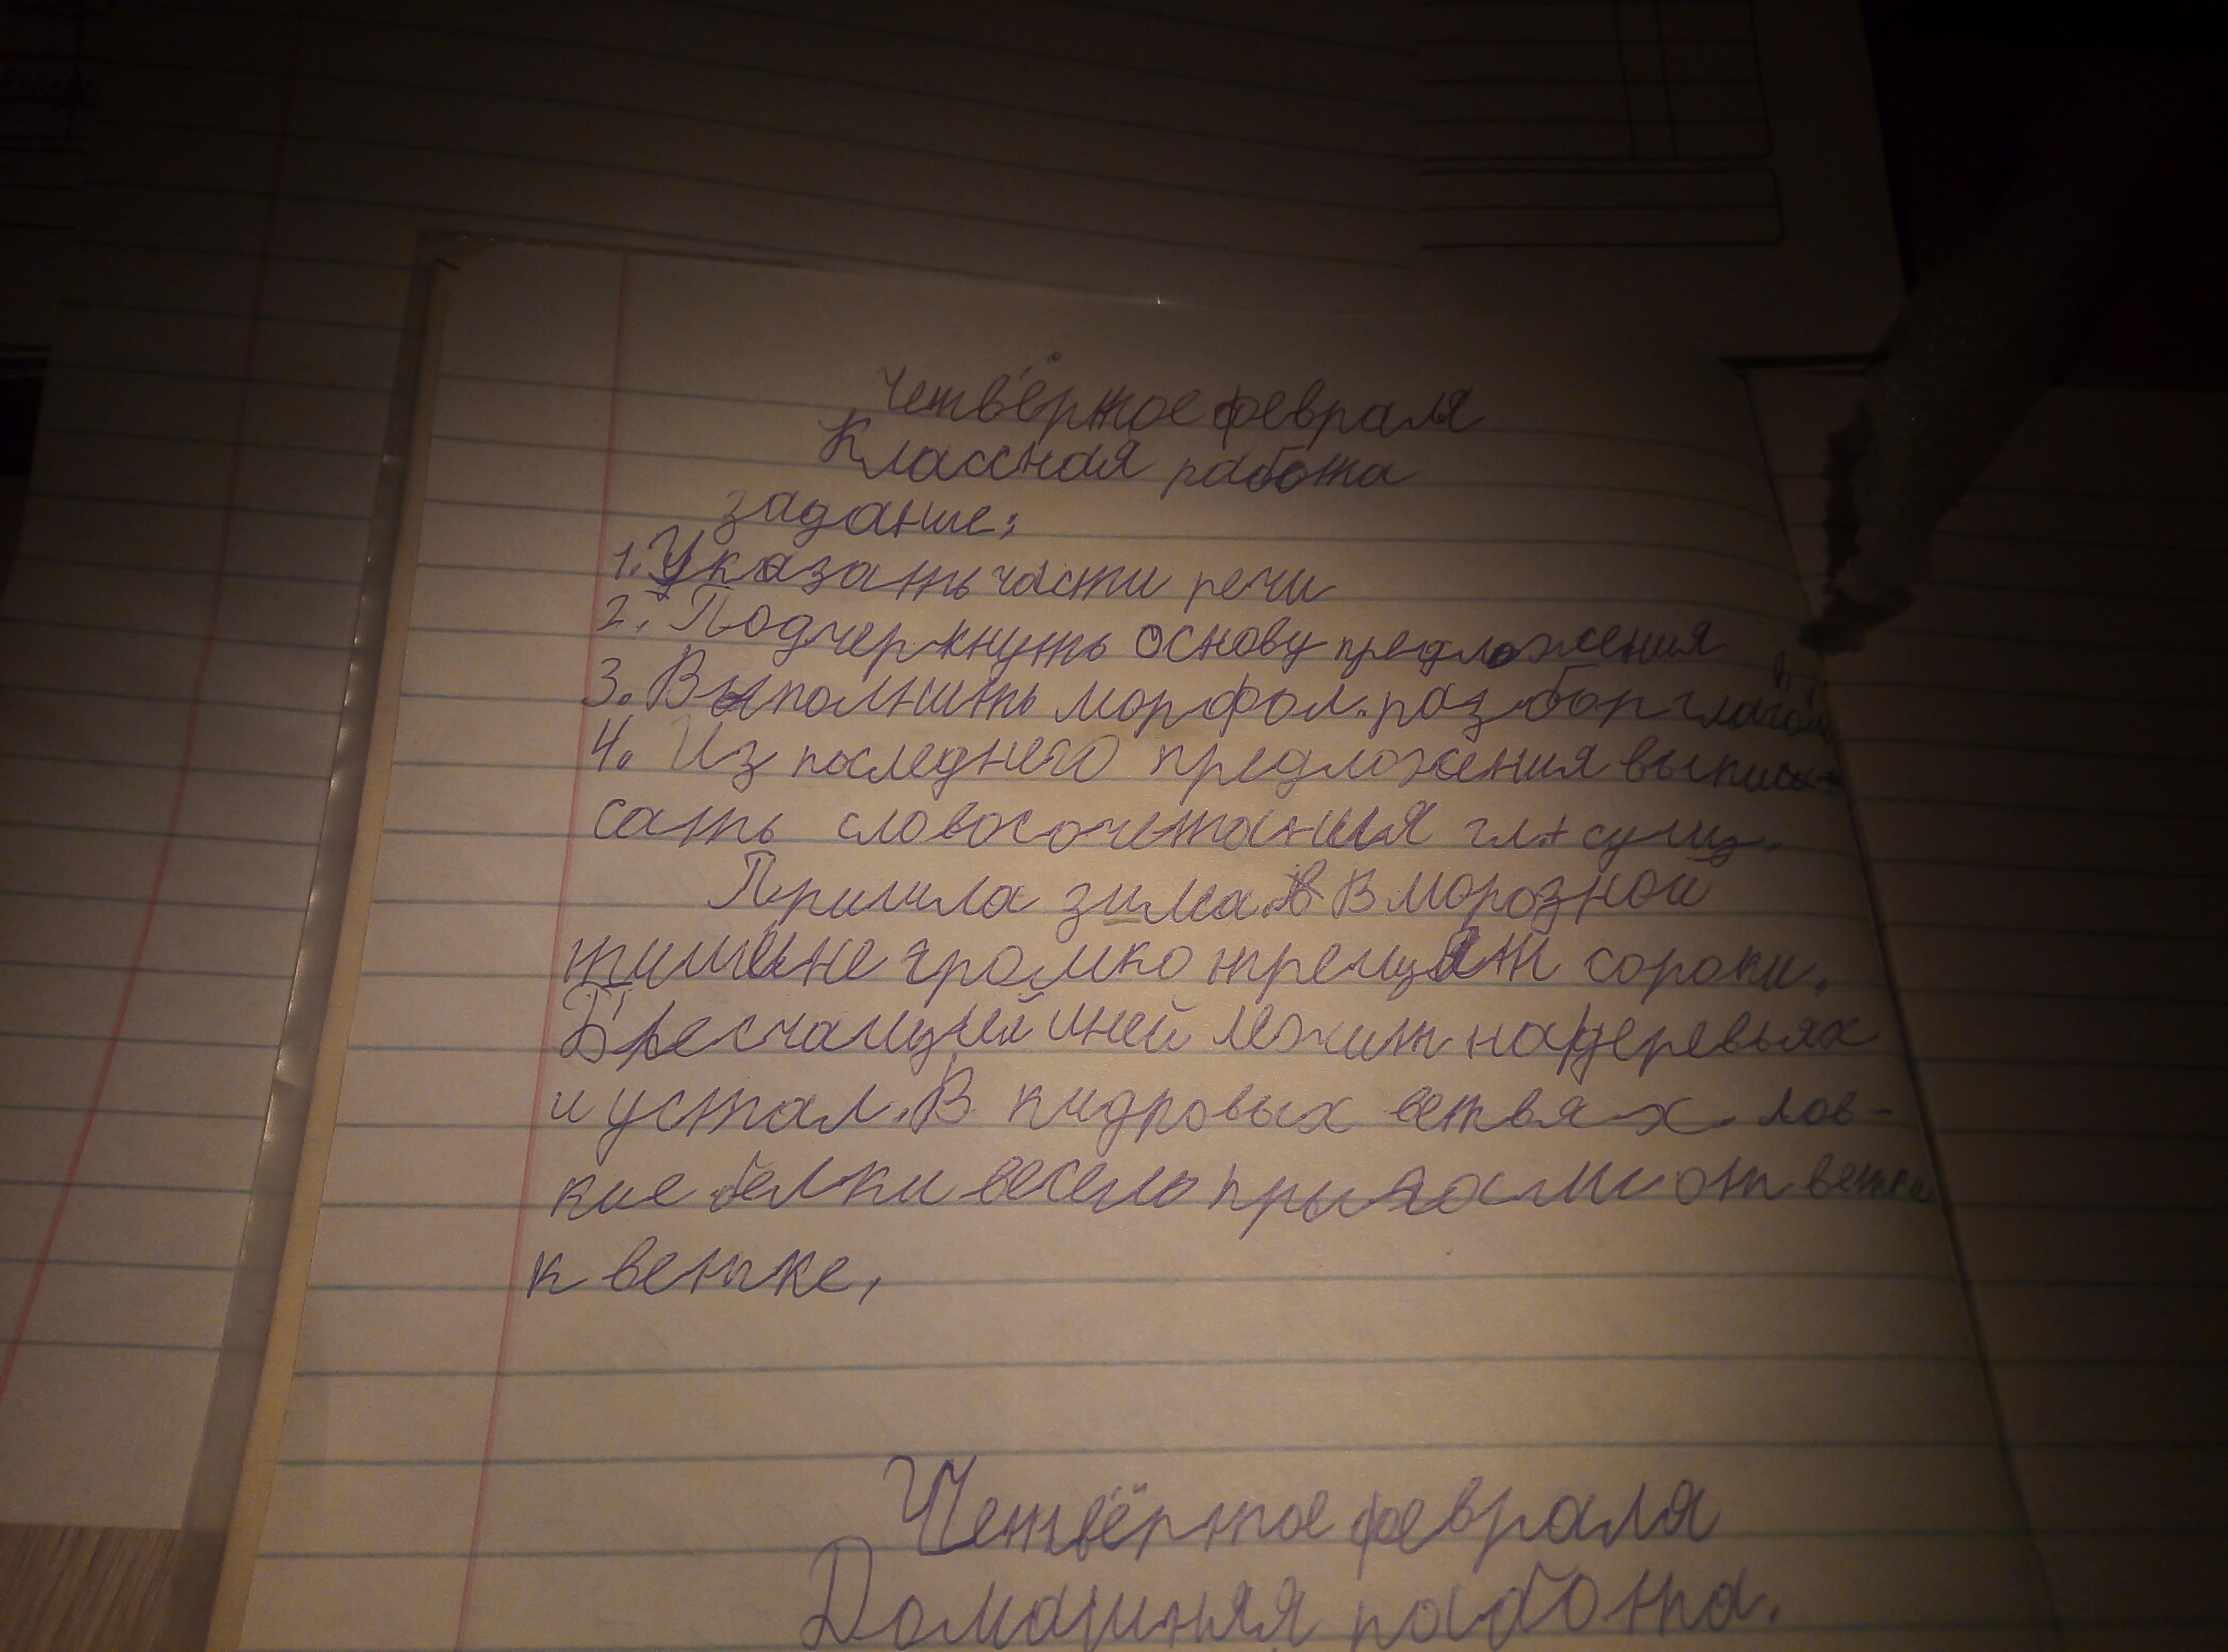 Четвёртое февраля
Классная работа
задание:
1. Указать части речи
2. Подчеркнуть основу предложения
3. Выполнить морфол. разбор
4. Из последнего предложения
сать словосочетания гл + сущ.
Пришла зима. В морозной
тишине громко трещат сороки.
иней лежит на деревьях
и устал. В кидровых ветвях лов-
кие белки весело от ветки
к ветке,
Четвёртое февраля
Домашняя работа.